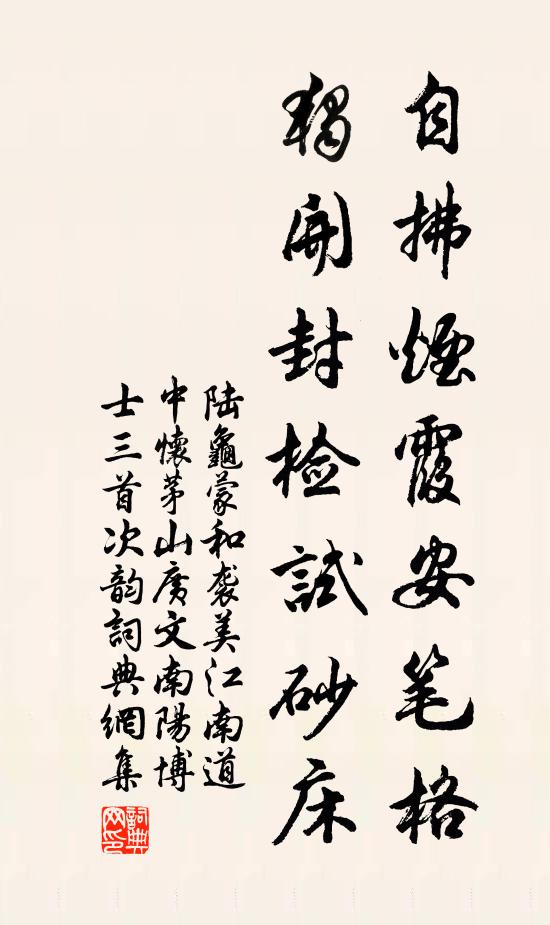 自拂煙霞安笔格
獨開封檢試砂床
陆龜蒙和袭美江南道
中懷茅山廣文南陽博
士三首次韵詞典網集
詞典
网印